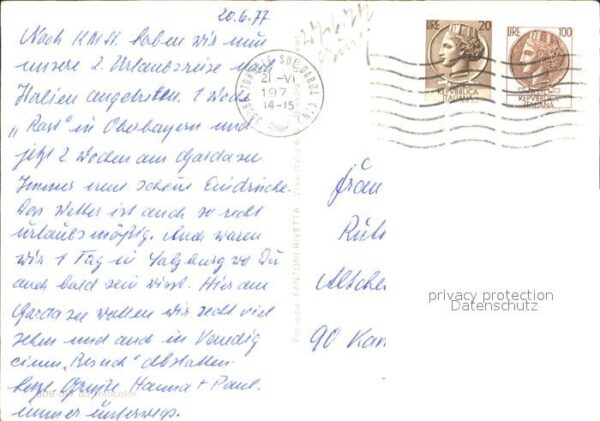 20.6.77
Nach KMSt. haben wir nun
unsere 2. Urlaubsreise nach
Italien angetreten. 1 Woche
"Rast" in Oberbayern und
jetzt 2 Wochen am Gardasee
Immer neue schöne Eindrücke.
Das Wetter ist auch so recht
urlaubsmäßig. Auch waren
wir 1 Tag in Salzburg wo Du
auch bald sein wirst. Hier am
Gardasee wollen wir recht viel
sehen und auch in Venedig
einen "Besuch" abstatten.
Herzl. Grüße Hanna + Paul.
immer unterwegs.
SUL GARDA (VR)
21-VI
197
14-15
LIRE 20
REPVBBLICA
ITALIANA
LIRE 100
REPVBBLICA
ITALIANA
FANTONI-RIVETTA
Frau
Ruth
90 Kar
privacy protection
Datenschutz